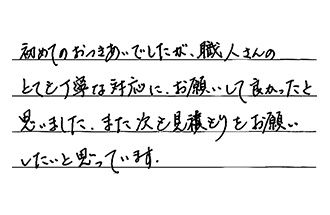 初めてのおつきあいでしたが、職人さんの
とても丁寧な対応に、お願いして良かったと
思いました。また次も見積もりをお願い
したいと思っています。